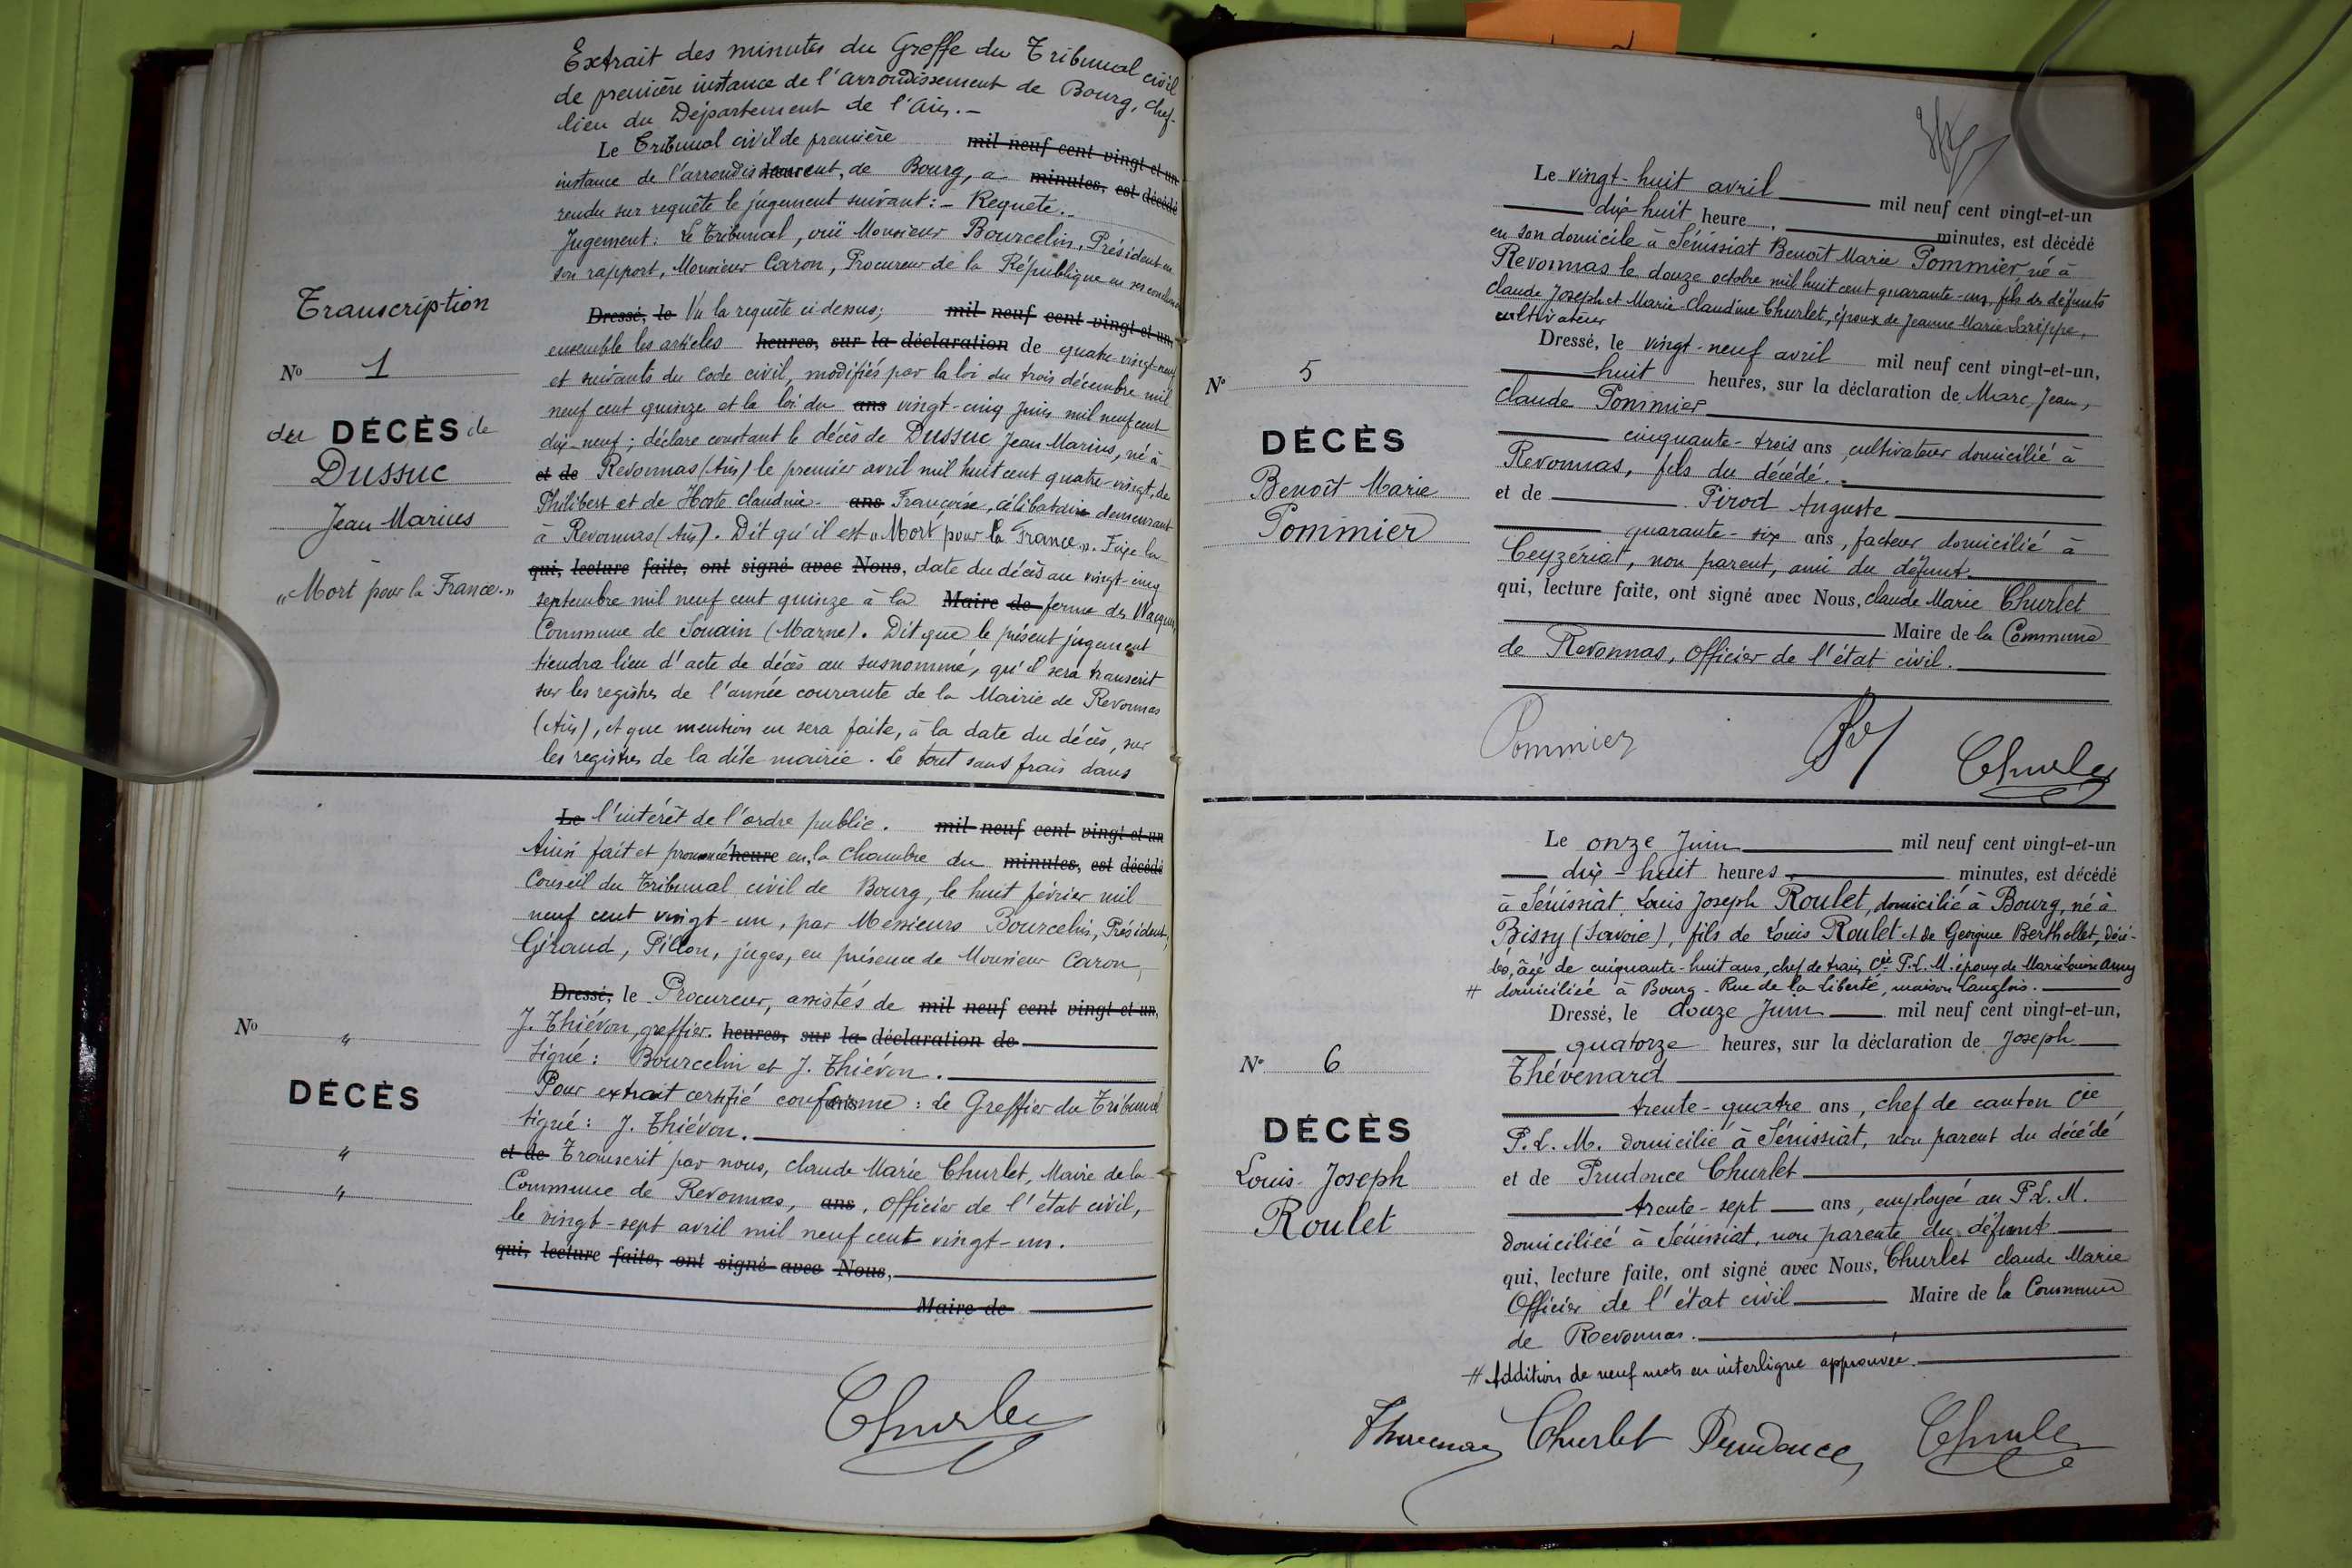 Extrait des minutes du Greffe du Tribunal civil
de première instance de l'arrondissement de Bourg, chef-
lieu du Département de l'Ain.-
Le Tribunal civil de première mil neuf cent vingt-et-un
instance de l'arrondissement, de Bourg, a minutes, est décédé
rendu sur requête le jugement suivant :- Requête.-
Jugement : Le Tribunal, ouï Monsieur Bourcelin, Président en
son rapport, Monsieur Caron, Procureur de la République en ses
Transcription
N° 1
du DÉCÈS de
Dussuc
Jean Marius
"Mort pour la France."
Dressé, le Vu la requête ci-dessus; mil neuf cent vingt-et-un,
ensemble les articles heures, sur la déclaration de quatre-vingt-neuf
et suivants du Code civil, modifiés par la loi du trois décembre mil
neuf cent quinze et la loi du ans vingt-cinq Juin mil neuf cent
dix-neuf ; déclare constant le décès de Dussuc Jean Marius, né à
et de Revonnas (Ain) le premier avril mil huit cent quatre-vingt, de
Philibert et de Hoste Claudine ans Françoise, célibataire demeurant
à Revonnas (Ain). Dit qu'il est "Mort pour la France". Fixe la
qui, lecture faite, ont signé avec Nous, date du décès au vingt-cinq
septembre mil neuf cent quinze à la Maire de ferme des Wacques,
Commune de Souain (Marne). Dit que le présent jugement
tiendra lieu d'acte de décès au susnommé, qu'il sera transcrit
sur les registres de l'année courante de la Mairie de Revonnas
(Ain), et que mention en sera faite, à la date du décès, sur
les registres de la dite mairie. Le tout sans frais dans
Le l'intérêt de l'ordre public. mil neuf cent vingt-et-un
Ainsi fait et prononcé heure en la Chambre du minutes, est décédé
Conseil du Tribunal civil de Bourg, le huit février mil
neuf cent vingt-un, par Messieurs Bourcelin, Président,
Géraud, Pillon, juges, en présence de Monsieur Caron,
N° "
DÉCÈS
"
"
Dressé, le Procureur, assistés de mil neuf cent vingt-et-un,
J. Thiévon, greffier. heures, sur la déclaration de
Signé : Bourcelin et J. Thiévon.
Pour extrait certifié conforme : Le Greffier du Tribunal
Signé : J. Thiévon.
et de Transcrit par nous, Claude Marie Churlet, Maire de la
Commune de Revonnas, ans, Officier de l'état civil,
le vingt-sept avril mil neuf cent vingt-un.
qui, lecture faite, ont signé avec Nous,
Maire de
Churlet
Le vingt-huit avril mil neuf cent vingt-et-un
dix huit heure, minutes, est décédé
en son domicile à Sénissiat Benoît Marie Pommier né à
Revonnas le douze octobre mil huit cent quarante-un, fils des défunts
Claude Joseph et Marie-Claudine Churlet, époux de Jeanne Marie Larippe,
cultivateur
N° 5
DÉCÈS
Benoît Marie
Pommier
Dressé, le vingt-neuf avril mil neuf cent vingt-et-un,
huit heures, sur la déclaration de Marc, Jean,
Claude Pommier
cinquante-trois ans, cultivateur domicilié à
Revonnas, fils du décédé.
et de Pirod Auguste
quarante-six ans, facteur domicilié à
Ceyzériat, non parent, ami du défunt.
qui, lecture faite, ont signé avec Nous, Claude Marie Churlet
Maire de la Commune
de Revonnas, Officier de l'état civil.
Pommier
Churlet
Le onze Juin mil neuf cent vingt-et-un
dix-huit heures minutes, est décédé
à Sénissiat Louis Joseph Roulet, domicilié à Bourg, né à
Bissy (Savoie), fils de Louis Roulet et de Georgine Berthollet, décé-
dés, âgé de cinquante-huit ans, chef de train Cie P.L.M. époux de Marie Louise
# domiciliée à Bourg - Rue de la Liberté, maison Langlois.
N° 6
DÉCÈS
Louis-Joseph
Roulet
Dressé, le douze Juin mil neuf cent vingt-et-un,
quatorze heures, sur la déclaration de Joseph
Thévenard
trente-quatre ans, chef de canton Cie
P.L.M. domicilié à Sénissiat, non parent du décédé
et de Prudence Churlet
trente-sept ans, employée au P.L.M.
domiciliée à Sénissiat, non parente du défunt.
qui, lecture faite, ont signé avec Nous, Churlet Claude Marie
Officier de l'état civil Maire de la Commune
de Revonnas.
# Addition de neuf mots en interligne approuvée.
Thevenard Churlet Prudence Churlet